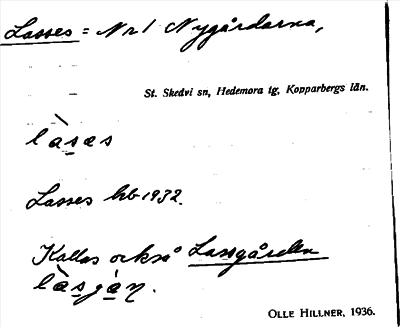 Lasses = Nr 1 Nygårdarna,
St. Skedvi sn, Hedemora tg, Kopparbergs län.
làsas
Lasses hb 1932.
Kallas också Lassgården
làsgàṇ.
OLLE HILLNER, 1936.